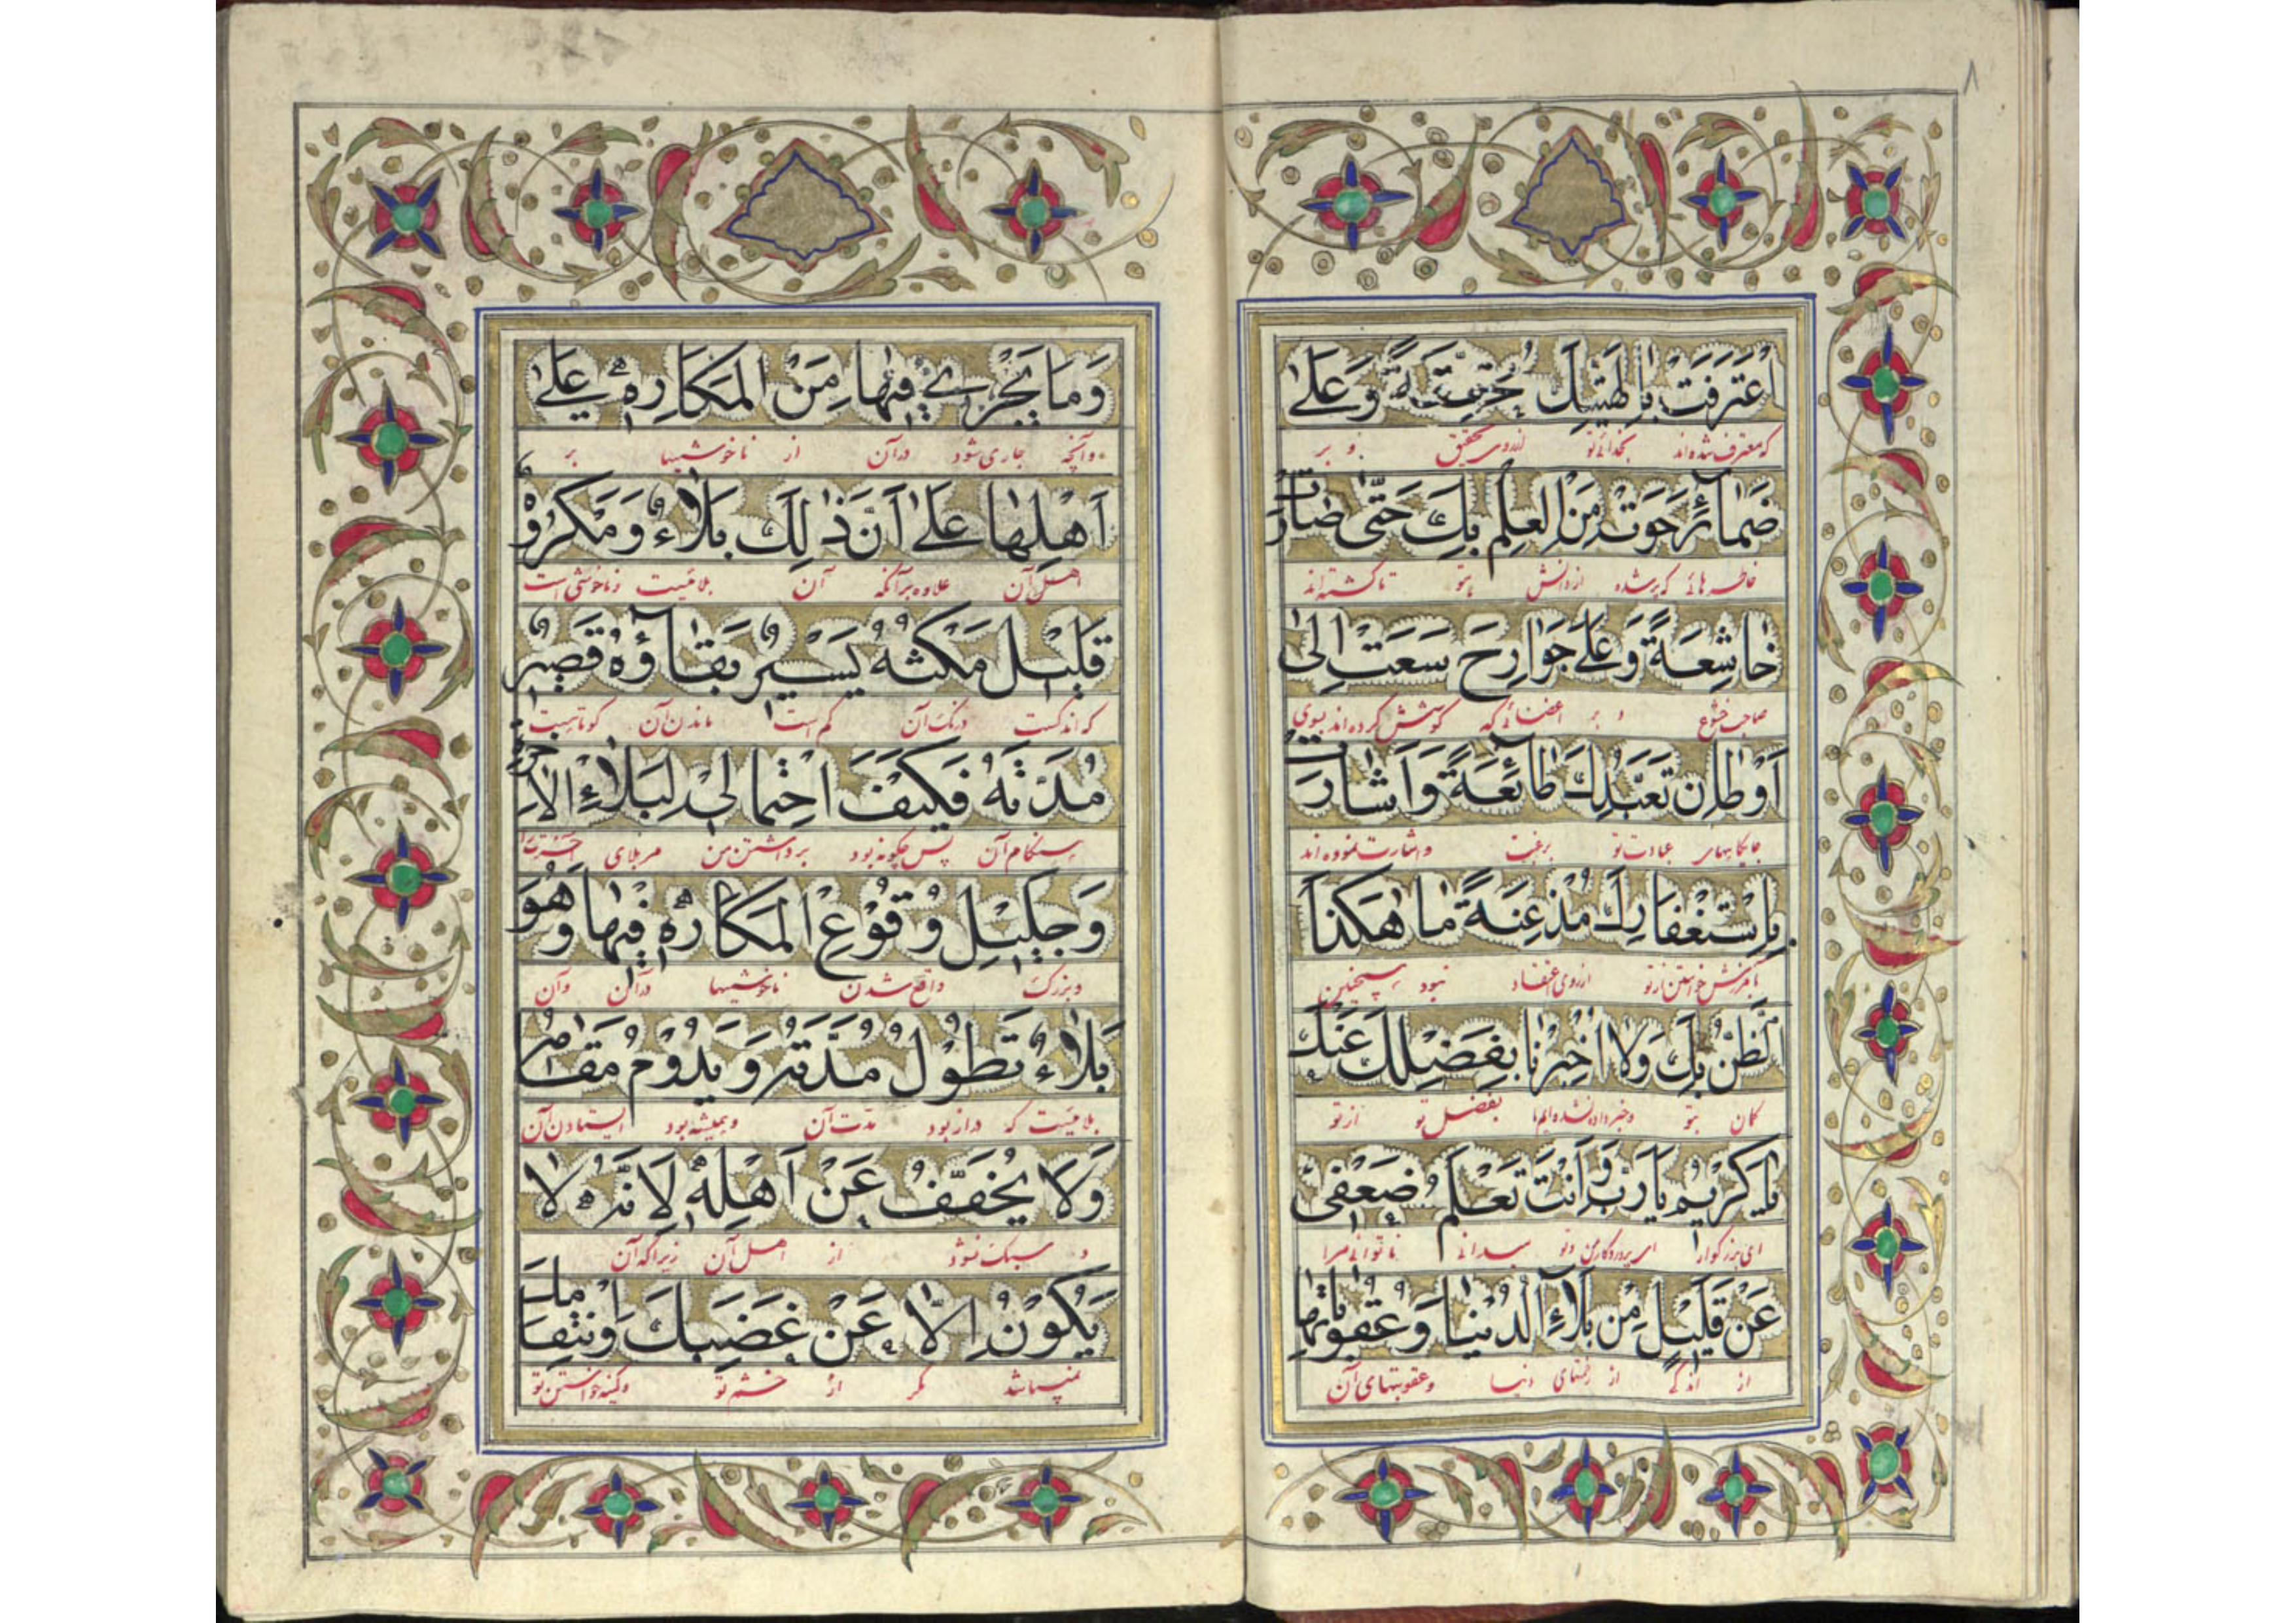 ۸
اعْتَرَفَتْ بِاِلٰهِيَّتِكَ مُحَقِّقَةً وَعَلٰى
که معترف شده‌اند بخدائی تو از روی تحقیق و بر
ضَمٰائِرَ حَوَتْ مِنَ الْعِلْمِ بِكَ حَتّٰى صٰارَتْ
خاطرهائی که پر شده از دانش بتو تا گشته‌اند
خٰاشِعَةً وَعَلٰى جَوٰارِحَ سَعَتْ اِلٰى
صاحب خشوع و بر اعضائی که کوشش کرده‌اند بسوی
اَوْطٰانِ تَعَبُّدِكَ طٰائِعَةً وَاَشٰارَتْ
جایگاههای عبادت تو برغبت و اشارت نموده‌اند
بِاِسْتِغْفٰارِكَ مُذْعِنَةً مٰا هٰكَذَا
بآمرزش خواستن از تو از روی اعتقاد نبود همچنین
الظَّنُّ بِكَ وَلٰا اُخْبِرْنٰا بِفَضْلِكَ عَنْكَ
گمان بتو و خبر داده نشده‌ایم ما بفضل تو از تو
يٰا كَرِيْمُ يٰا رَبِّ وَاَنْتَ تَعْلَمُ ضَعْفِيْ
ای بزرگوار ای پروردگار من و تو میدانی ناتوانی مرا
عَنْ قَلِيْلٍ مِنْ بَلٰاءِ الدُّنْيٰا وَعُقُوبٰاتِهٰا
از اندکی از بلاهای دنیا و عقوبتهای آن
وَمٰا يَجْرِيْ فِيْهٰا مِنَ الْمَكٰارِهِ عَلٰى
و آنچه جاری شود در آن از ناخوشیها بر
اَهْلِهٰا عَلٰى اَنَّ ذٰلِكَ بَلٰاءٌ وَمَكْرُوْهٌ
اهل آن علاوه بر آنکه آن بلائیست و ناخوشی است
قَلِيْلٌ مَكْثُهُ يَسِيْرٌ بَقٰاؤُهُ قَصِيْرٌ
که اندکست درنگ آن کم است ماندن آن کوتاهست
مُدَّتُهُ فَكَيْفَ احْتِمٰالِيْ لِبَلٰاءِ الْاٰخِرَةِ
هنگام آن پس چگونه بود برداشتن من مر بلای آخرت را
وَجَلِيْلِ وُقُوْعِ الْمَكٰارِهِ فِيْهٰا وَهُوَ
و بزرگ واقع شدن ناخوشیها در آن و آن
بَلٰاءٌ تَطُوْلُ مُدَّتُهُ وَيَدُوْمُ مَقٰامُهُ
بلائیست که دراز بود مدت آن و همیشه بود ایستادن آن
وَلٰا يُخَفَّفُ عَنْ اَهْلِهِ لِاَنَّهُ لٰا
و سبک نشود از اهل آن زیرا که آن
يَكُوْنُ اِلّٰا عَنْ غَضَبِكَ وَانْتِقٰامِكَ
نمیباشد مگر از خشم تو و کینه خواستن تو